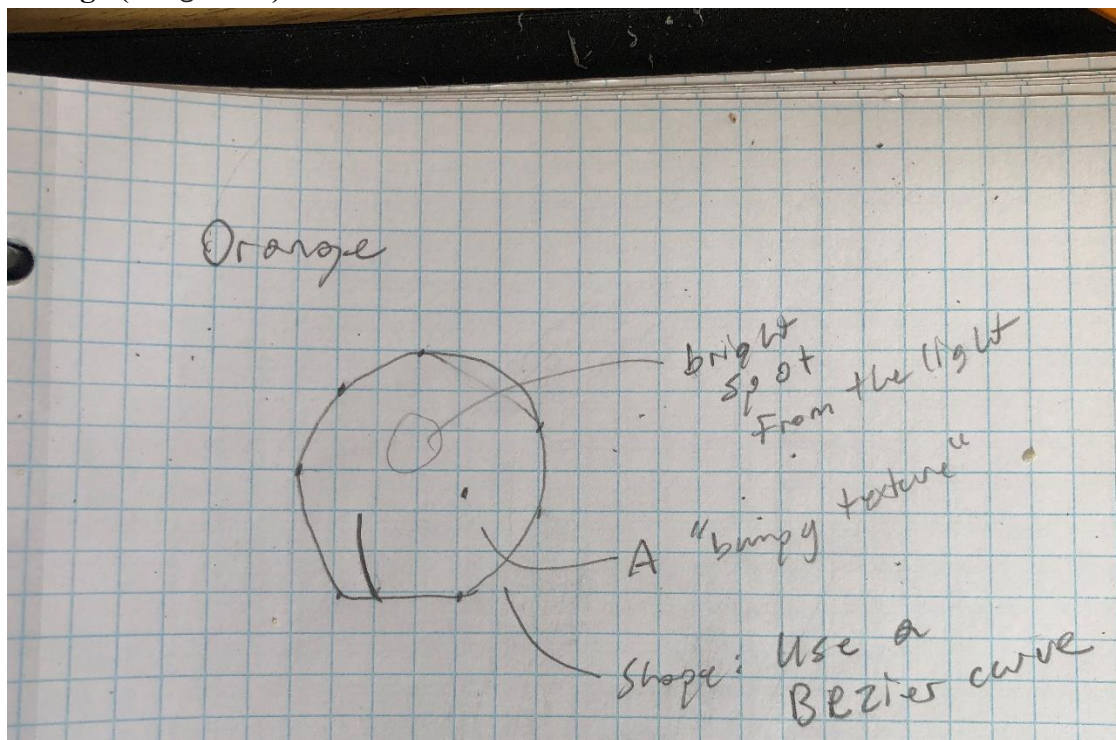 Orange
bright
spot
from the light
A "bumpy texture"
Shape: Use a
BEzier curve